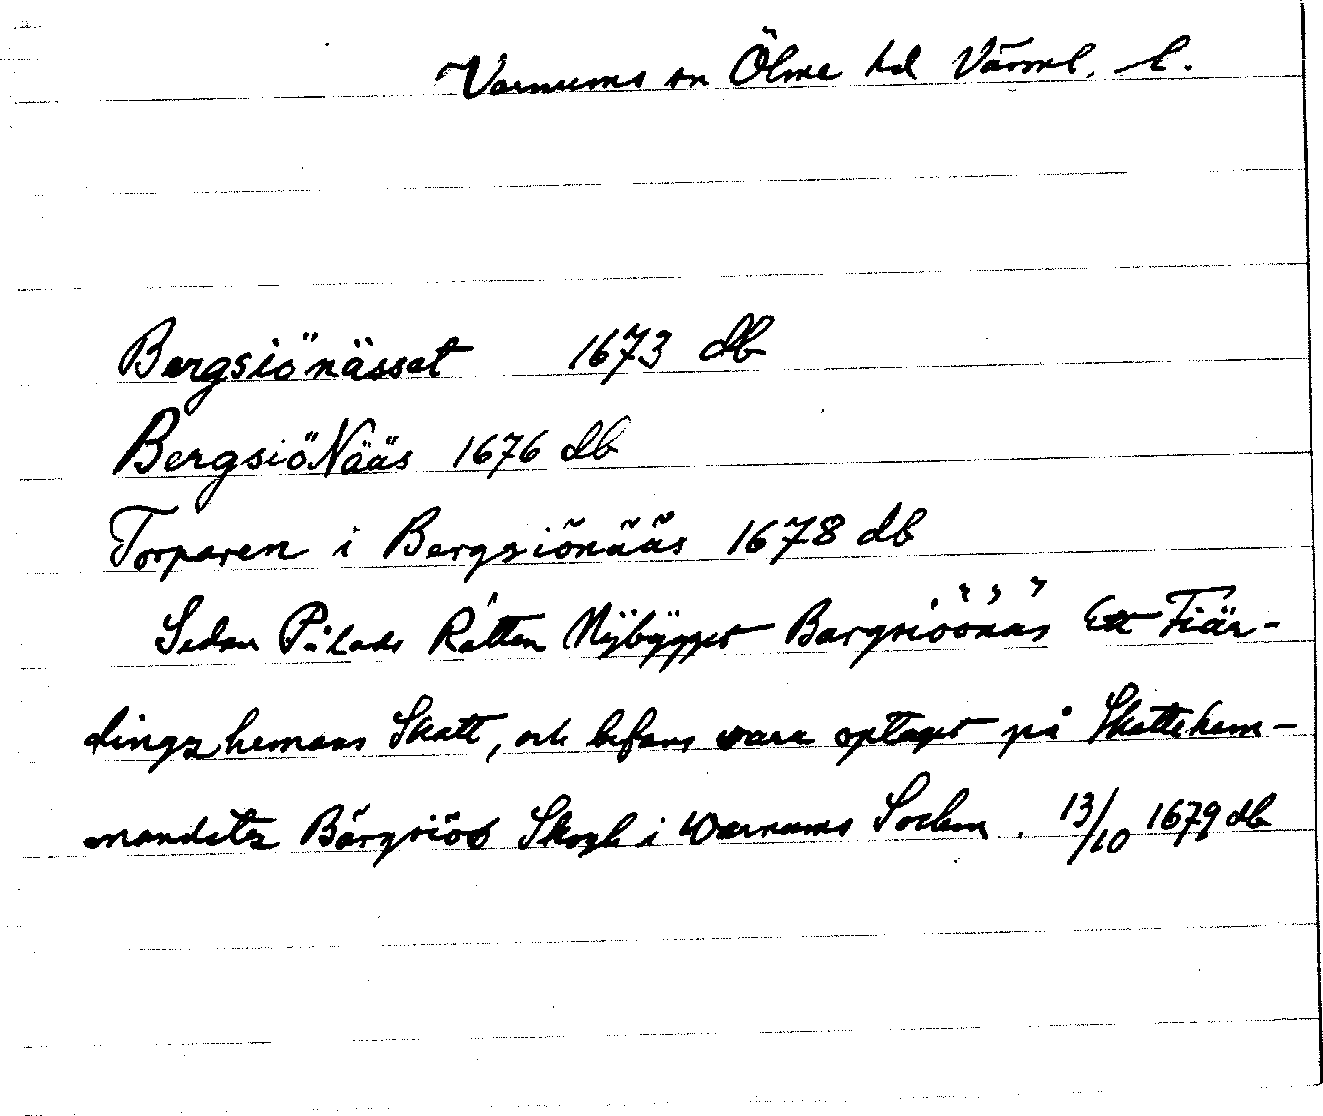 Varnums sn Ölme hd Värml. l.
Bergsiönässet 1673 db
BergsiöNääs 1676 db
Torparen i Bergsiönääs 1678 db
Sedan Pålade Rätten Nÿbÿgget Bergsiöönäs Ett Fiär-
dingz hemans Skatt, och befans wara optaget på Skattehem-
mandetz Bärgsiös Skogh i Warnums Sochn. 13/10 1679 db